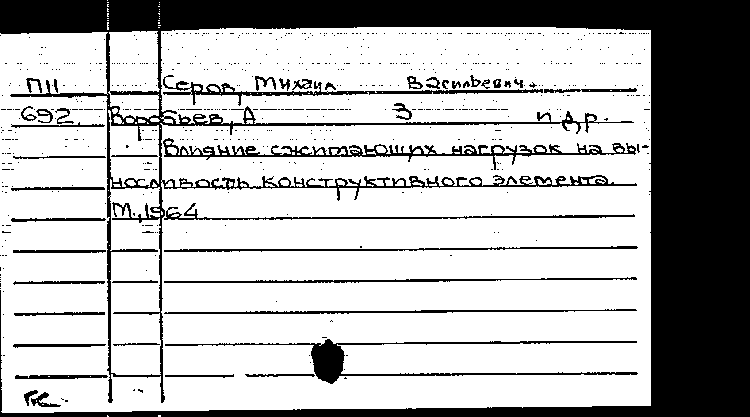 ПН Серов, Михаил Васильевич.
692 Воробьев, А З и др.
Влияние сжимающих нагрузок на вы-
носливость конструктивного элемента.
М., 1964